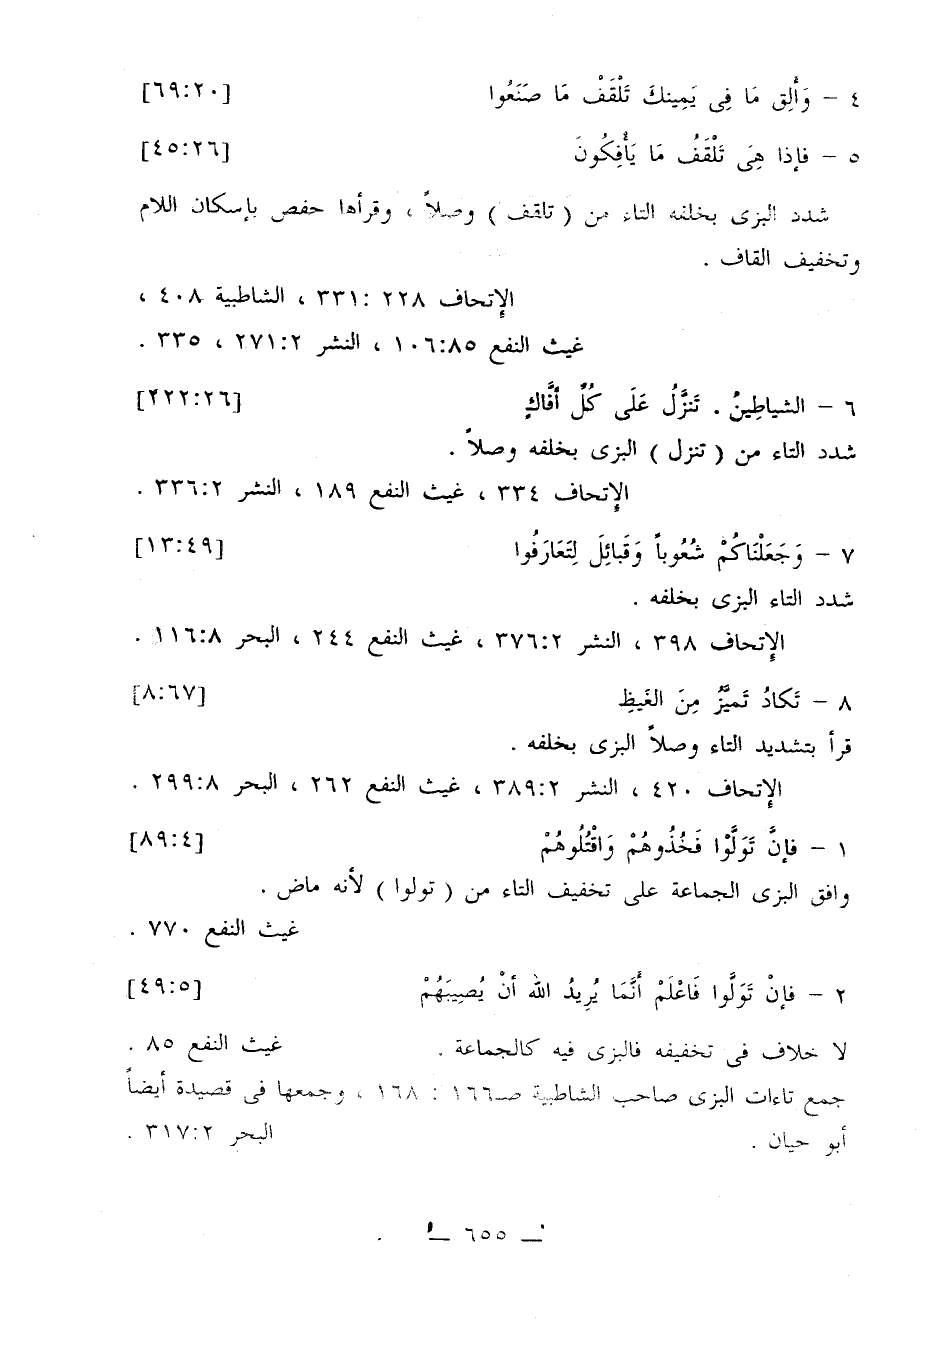 ٤ – وَأَلِقِ مَا فِى يَمِينِكَ تَلْقَفْ مَا صَنَعُوا [٦٩:٢٠]
٥ – فإِذا هِىَ تَلْقَفُ مَا يَأْفِكُونَ [٤٥:٢٦]
شدد البزى بخلفه التاء من ( تلقف ) وصلاً ، وقرأها حفص بإسكان اللام
وتخفيف القاف .
الإتحاف ٢٢٨ :٣٣١ ، الشاطبية ٤٠٨ ،
غيث النفع ١٠٦:٨٥ ، النشر ٢٧١:٢ ، ٣٣٥ .
٦ – الشياطِينُ . تَنزَّلُ عَلَى كُلِّ أفَّاكٍ [٢٢٢:٢٦]
شدد التاء من ( تنزل ) البزى بخلفه وصلاً .
الإتحاف ٣٣٤ ، غيث النفع ١٨٩ ، النشر ٣٣٦:٢ .
٧ – وَجَعَلْنَاكُمْ شُعُوباً وَقَبائِلَ لِتَعَارَفُوا [١٣:٤٩]
شدد التاء البزى بخلفه .
الإتحاف ٣٩٨ ، النشر ٣٧٦:٢ ، غيث النفع ٢٤٤ ، البحر ١١٦:٨ .
٨ – تَكادُ تَميَّزُ مِنَ الغَيظِ [٨:٦٧]
قرأ بتشديد التاء وصلاً البزى بخلفه .
الإتحاف ٤٢٠ ، النشر ٣٨٩:٢ ، غيث النفع ٢٦٢ ، البحر ٢٩٩:٨ .
١ – فإنَّ تَوَلَّوْا فَخُذُوهُمْ وَاقْتُلُوهُمْ [٨٩:٤]
وافق البزى الجماعة على تخفيف التاء من ( تولوا ) لأنه ماض .
غيث النفع ٧٧٠ .
٢ – فإنْ تَوَلَّوا فَاعْلَمْ أَنَّمَا يُرِيدُ الله أنْ يُصِيبَهُمْ [٤٩:٥]
لا خلاف فى تخفيفه فالبزى فيه كالجماعة . غيث النفع ٨٥ .
جمع تاءات البزى صاحب الشاطبية صـ١٦٦ : ١٦٨ ، وجمعها فى قصيدة أيضاً
أبو حيان . البحر ٣١٧:٢ .
– ٦٥٥ –